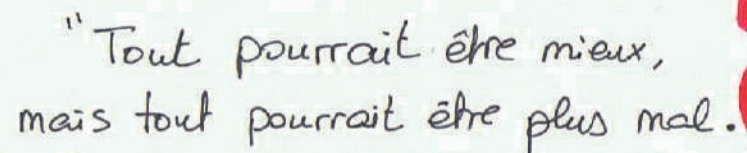 "Tout pourrait être mieux,
mais tout pourrait être plus mal.